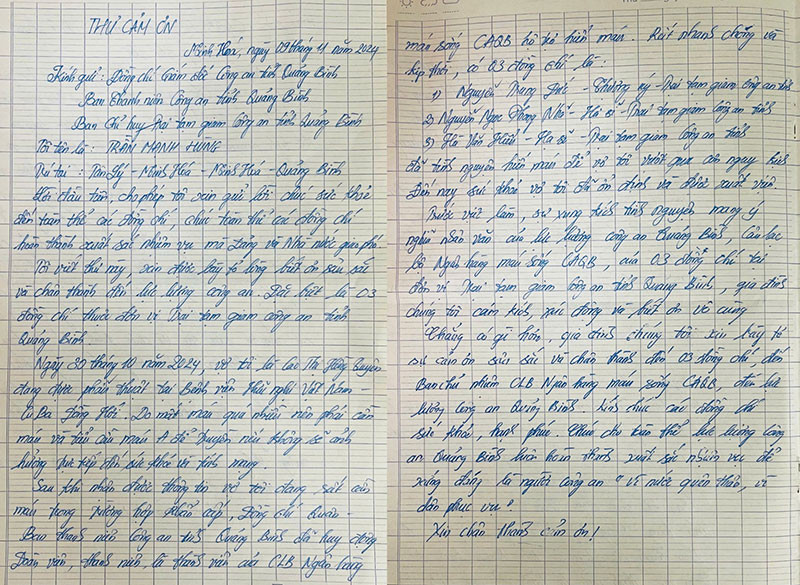 THƯ CẢM ƠN
Minh Hoá, ngày 09 tháng 11 năm 2024
Kính gửi: Đồng chí Giám đốc Công an tỉnh Quảng Bình
Ban Thanh niên Công an tỉnh Quảng Bình
Ban Chỉ huy Trại tạm giam Công an tỉnh Quảng Bình
Tôi tên là: TRẦN MẠNH HÙNG
Trú tại: Tân Lý - Minh Hoá - Minh Hoá - Quảng Bình
Lời đầu tiên, cho phép tôi xin gửi lời chúc sức khoẻ
đến toàn thể các đồng chí, chúc toàn thể các đồng chí
hoàn thành xuất sắc nhiệm vụ mà Đảng và Nhà nước giao phó
Tôi viết thư này, xin được bày tỏ lòng biết ơn sâu sắc
và chân thành đến lực lượng công an. Đặc biệt là 03
đồng chí thuộc đơn vị Trại tạm giam công an tỉnh
Quảng Bình.
Ngày 30 tháng 10 năm 2024, vợ tôi là Cao Thị Hồng
đang được phẫu thuật tại Bệnh viện Hữu nghị Việt Nam -
Cu Ba Đồng Hới. Do mất máu quá nhiều nên phải cần
máu và cần máu A để truyền nếu không sẽ ảnh
hưởng trực tiếp đến sức khoẻ và tính mạng.
Sau khi nhận được thông tin vợ tôi đang rất cần
máu trong trường hợp khẩn cấp, Đồng chí Quân -
Ban thanh niên Công an tỉnh Quảng Bình đã huy động
Đoàn viên, thanh niên, là thành viên của CLB Ngân hàng
máu sống CAQB hỗ trợ hiến máu. Rất nhanh chóng và
kịp thời, có 03 đồng chí là:
1) Nguyễn Trung Đức - Thượng uý - Trại tạm giam Công an tỉnh
2) Nguyễn Ngọc Đông Nhã - Hạ sĩ - Trại tạm giam Công an tỉnh
3) Hà Văn Hiếu - Hạ sĩ - Trại tạm giam Công an tỉnh
đã tình nguyện hiến máu để vợ tôi vượt qua cơn nguy kịch
Đến nay sức khoẻ vợ tôi đã ổn định và được xuất viện.
Trước việc làm, sự xung kích tình nguyện mang ý
nghĩa nhân văn của lực lượng công an Quảng Bình, Câu lạc
bộ Ngân hàng máu sống CAQB, của 03 đồng chí tại
đơn vị Trại tạm giam công an tỉnh Quảng Bình, gia đình
chúng tôi cảm kích, xúc động và biết ơn vô cùng
Chẳng có gì hơn, gia đình chúng tôi xin bày tỏ
sự cảm ơn sâu sắc và chân thành đến 03 đồng chí, đến
Ban chủ nhiệm CLB Ngân hàng máu sống CAQB, đến lực
lượng Công an Quảng Bình. Kính chúc các đồng chí
sức khoẻ, hạnh phúc. Chúc cho toàn thể lực lượng Công
an Quảng Bình luôn hoàn thành xuất sắc nhiệm vụ để
xứng đáng là người công an "vì nước quên thân, vì
dân phục vụ".
Xin chân thành cảm ơn!